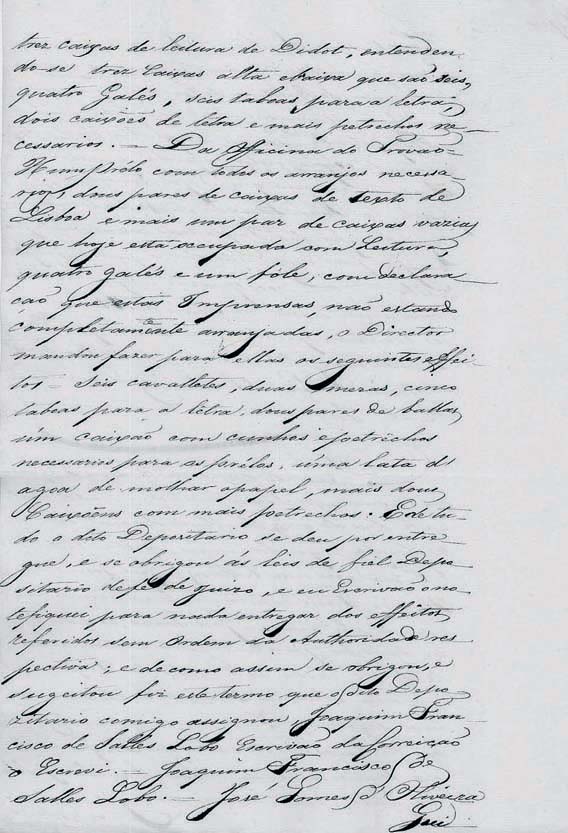 trez caixas de leitura de Didot, entenden
do-se trez Caixas alta ebaixa que saõ seis,
quatro Galés, seis taboas, para a letra,
dois caixões de létra e mais petrechos ne-
cessarios. — Da Officina do Provaõ-
Hum prélo com todos os arranjos necessa-
rios, dous pares de caixas de texto de
Lisboa e mais um par de caixas vazias
que hoje está occupada com Leitura,
quatro galés e um fóle; com declara-
çaõ que estas Imprensas, naõ estando
completamente arranjadas, o Director
mandou fazer para ellas os seguintes effei-
tos — Seis cavalletes, duas mezas, cinco
taboas para a létra, dous pares de ballas,
um caixaõ com cunhos epetrechos
necessarios para as prélos, uma lata d'
agoa de molhar opapel, mais dous
Caixõens com mais petrechos. Ede tu-
do a dito Depositario se deu por entre
gue, e se obrigou ás leis de fiel Depo-
sitario de fé de juizo, e eu Escrivaõ o no-
tefiquei para nada entregar dos effeitos
referidos sem ordem da Authoridade res-
pectiva; e de como assim se obrigou, e
sugeitou fiz este termo que o dito Depo-
zitario comigo assignou, Joaquim Fran-
cisco de Salles Lobo Escrivaõ da Correiçaõ
o Escrevi. — Joaquim Francisco de
Salles Lobo. — José Gomes d'Oliveira